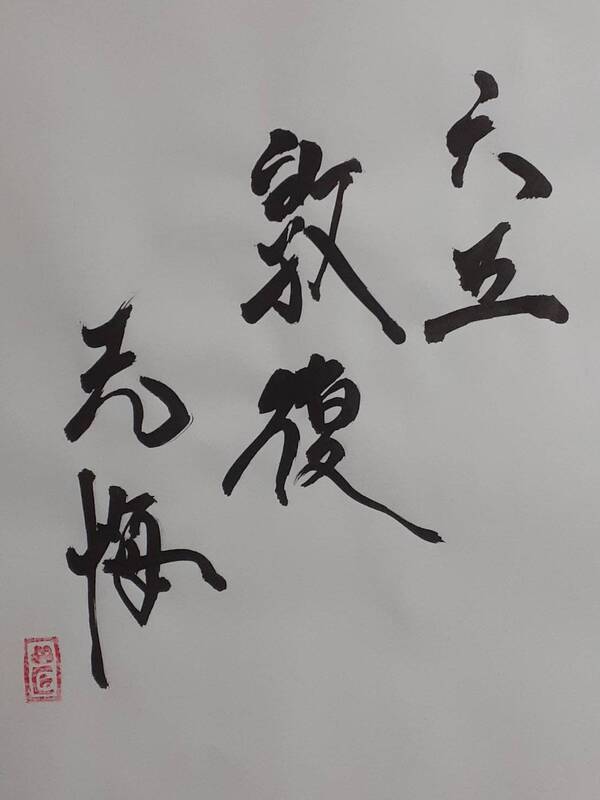 六五
敦復
无悔